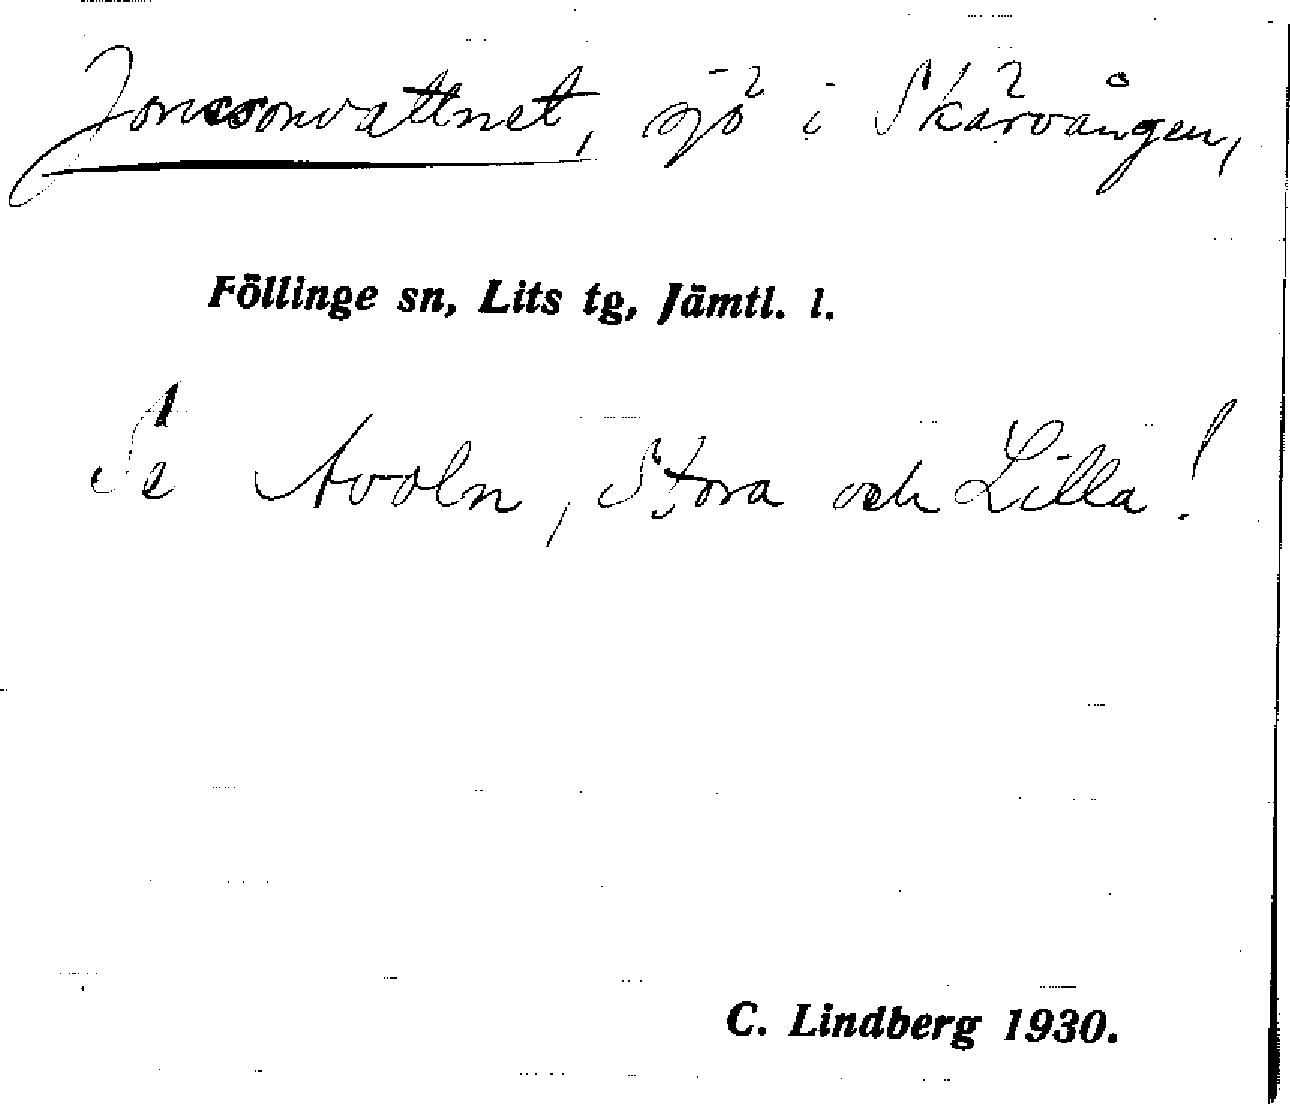 Jonssonvattnet, sjö i Skärvången,
Föllinge sn, Lits tg, Jämtl. l.
Se Avoln, Stora och Lilla!
C. Lindberg 1930.